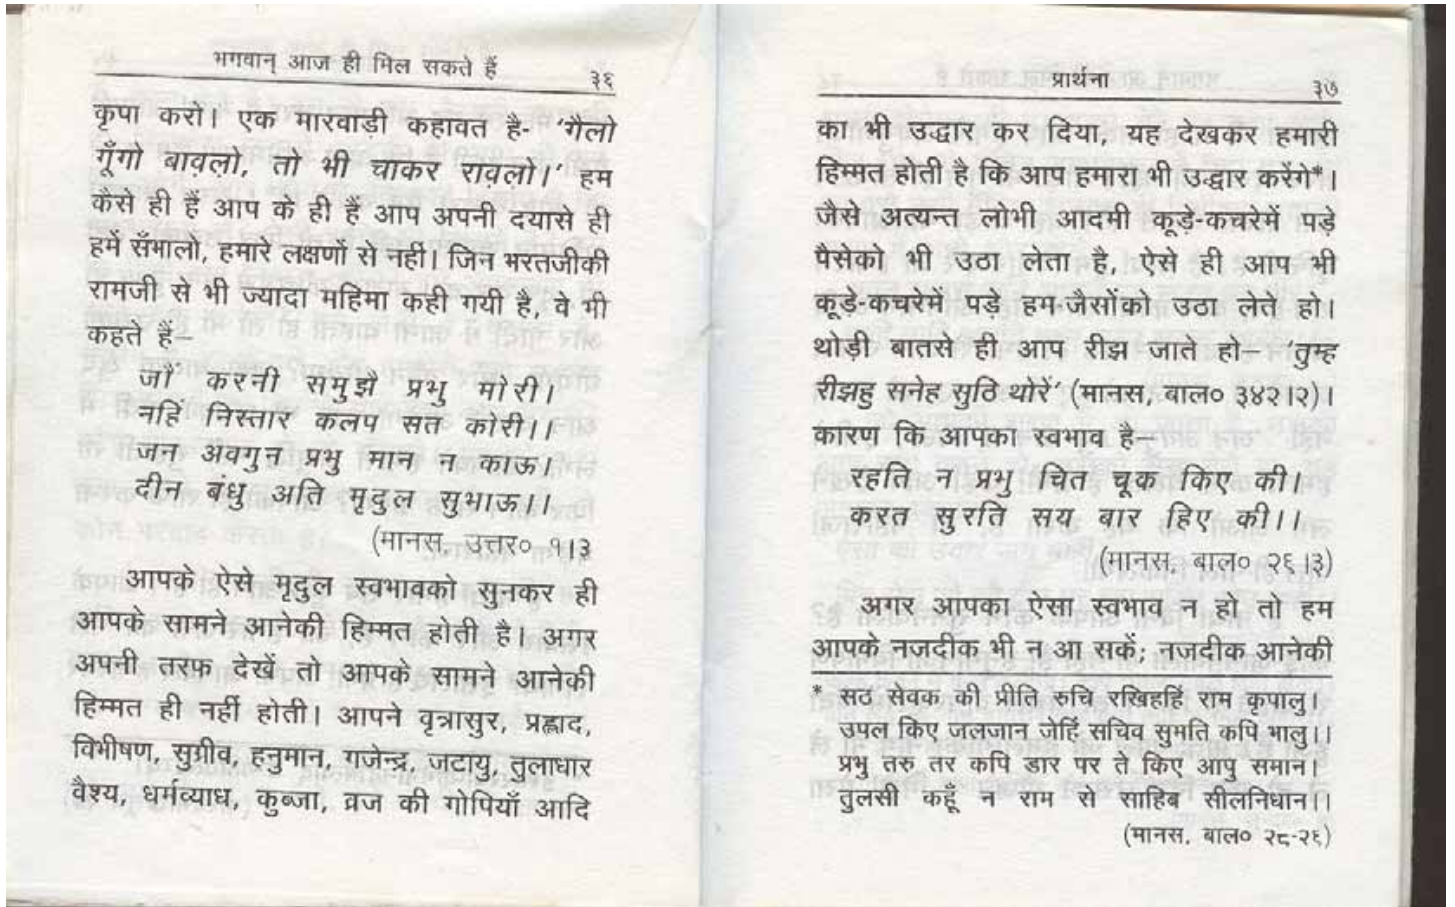 भगवान् आज ही मिल सकते हैं ३६
कृपा करो। एक मारवाड़ी कहावत है- 'गैलो
गूँगो बाव़लो, तो भी चाकर राव़लो।' हम
कैसे ही हैं आप के ही हैं आप अपनी दयासे ही
हमें सँभालो, हमारे लक्षणों से नहीं। जिन भरतजीकी
रामजी से भी ज्यादा महिमा कही गयी है, वे भी
कहते हैं–
जौं करनी समुझै प्रभु मोरी।
नहिं निस्तार कलप सत कोरी।।
जन अवगुन प्रभु मान न काऊ।
दीन बंधु अति मृदुल सुभाऊ।।
(मानस, उत्तर० १।३
आपके ऐसे मृदुल स्वभावको सुनकर ही
आपके सामने आनेकी हिम्मत होती है। अगर
अपनी तरफ देखें तो आपके सामने आनेकी
हिम्मत ही नहीं होती। आपने वृत्रासुर, प्रह्लाद,
विभीषण, सुग्रीव, हनुमान, गजेन्द्र, जटायु, तुलाधार
वैश्य, धर्मव्याध, कुब्जा, व्रज की गोपियाँ आदि
प्रार्थना ३७
का भी उद्धार कर दिया, यह देखकर हमारी
हिम्मत होती है कि आप हमारा भी उद्धार करेंगे*।
जैसे अत्यन्त लोभी आदमी कूड़े-कचरेमें पड़े
पैसेको भी उठा लेता है, ऐसे ही आप भी
कूड़े-कचरेमें पड़े हम-जैसोंको उठा लेते हो।
थोड़ी बातसे ही आप रीझ जाते हो– 'तुम्ह
रीझहु सनेह सुठि थोरें' (मानस, बाल० ३४२।२)।
कारण कि आपका स्वभाव है–
रहति न प्रभु चित चूक किए की।
करत सुरति सय बार हिए की।।
(मानस, बाल० २६।३)
अगर आपका ऐसा स्वभाव न हो तो हम
आपके नजदीक भी न आ सकें; नजदीक आनेकी
* सठ सेवक की प्रीति रुचि रखिहहिं राम कृपालु।
उपल किए जलजान जेहिं सचिव सुमति कपि भालु।।
प्रभु तरु तर कपि डार पर ते किए आपु समान।
तुलसी कहूँ न राम से साहिब सीलनिधान।।
(मानस, बाल० २८-२६)